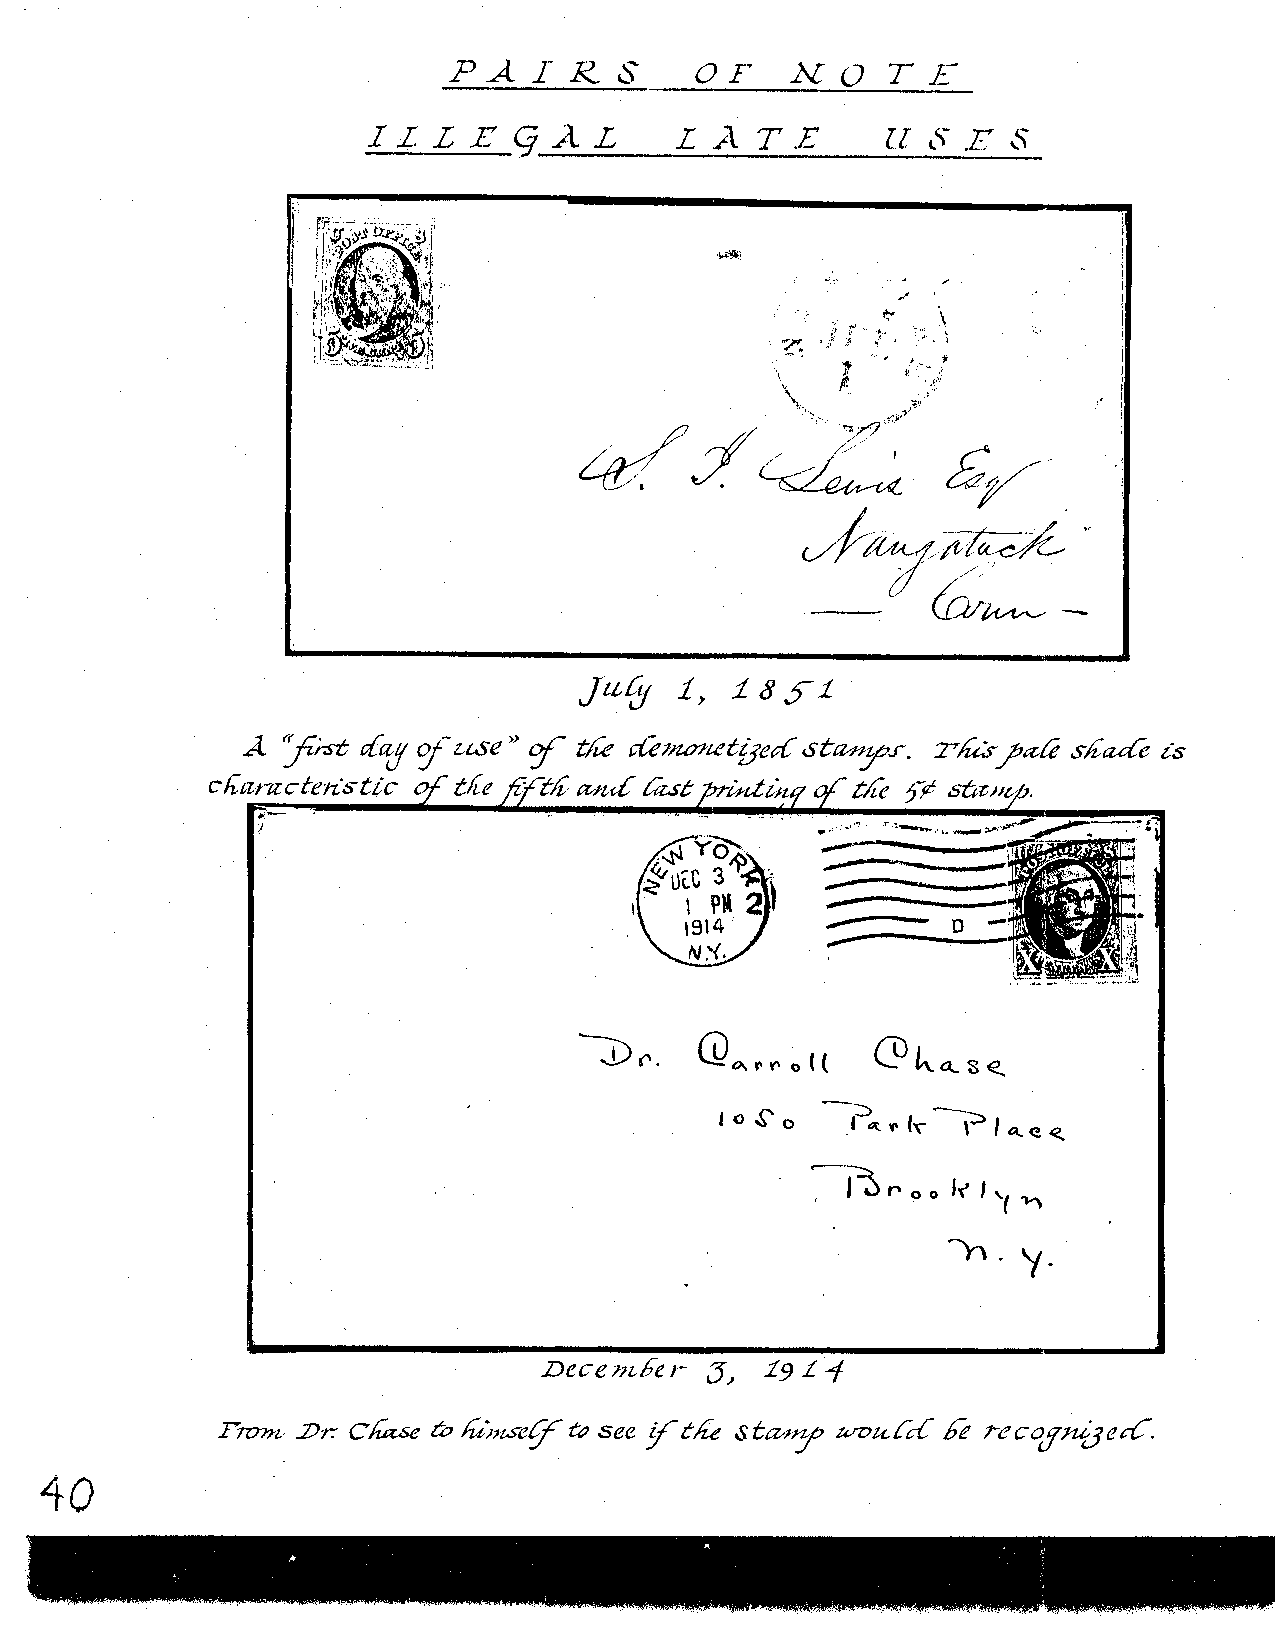 PAIRS OF NOTE
ILLEGAL LATE USES
POST OFFICE
JUL
1
S. I. Lewis Esq
Naugatuck
Conn
July 1, 1851
A "first day of use" of the demonetized stamps. This pale shade is
characteristic of the fifth and last printing of the 5¢ stamp.
NEW YORK 2
DEC 3
1 PM
1914
N.Y.
D
X X
Dr. Carroll Chase
1050 Park Place
Brooklyn
N.Y.
December 3, 1914
From Dr. Chase to himself to see if the stamp would be recognized.
40